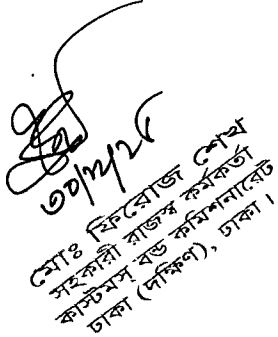 ৩০/১২/২৪
মোঃ ফিরোজ শেখ
সহকারী রাজস্ব কর্মকর্তা
কাস্টমস্ বন্ড কমিশনারেট
ঢাকা (দক্ষিণ), ঢাকা।